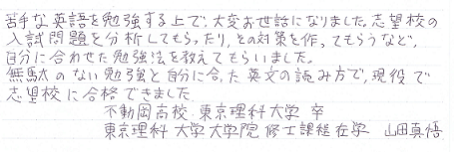 苦手な英語を勉強する上で、大変お世話になりました。志望校の
入試問題を分析してもらったり、その対策を作ってもらうなど、
自分に合わせた勉強法を教えてもらいました。
無駄のない勉強と自分に合った英文の読み方で、現役で
志望校に合格できました
不動岡高校 東京理科大学 卒
東京理科大学大学院 修士課程在学 山田真悟